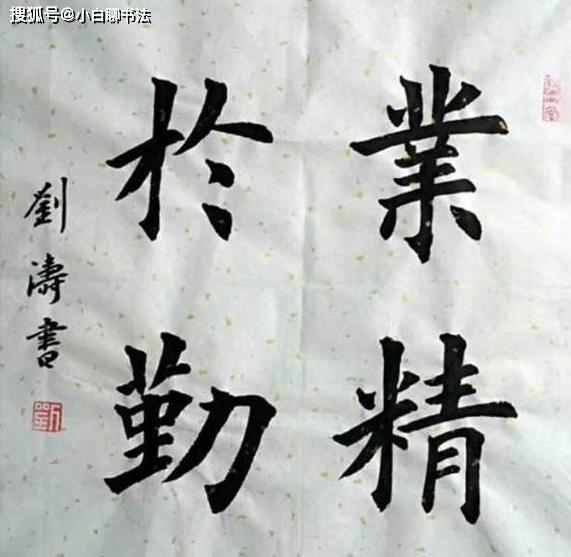 搜狐号@小白聊书法
業精
於勤
劉濤書